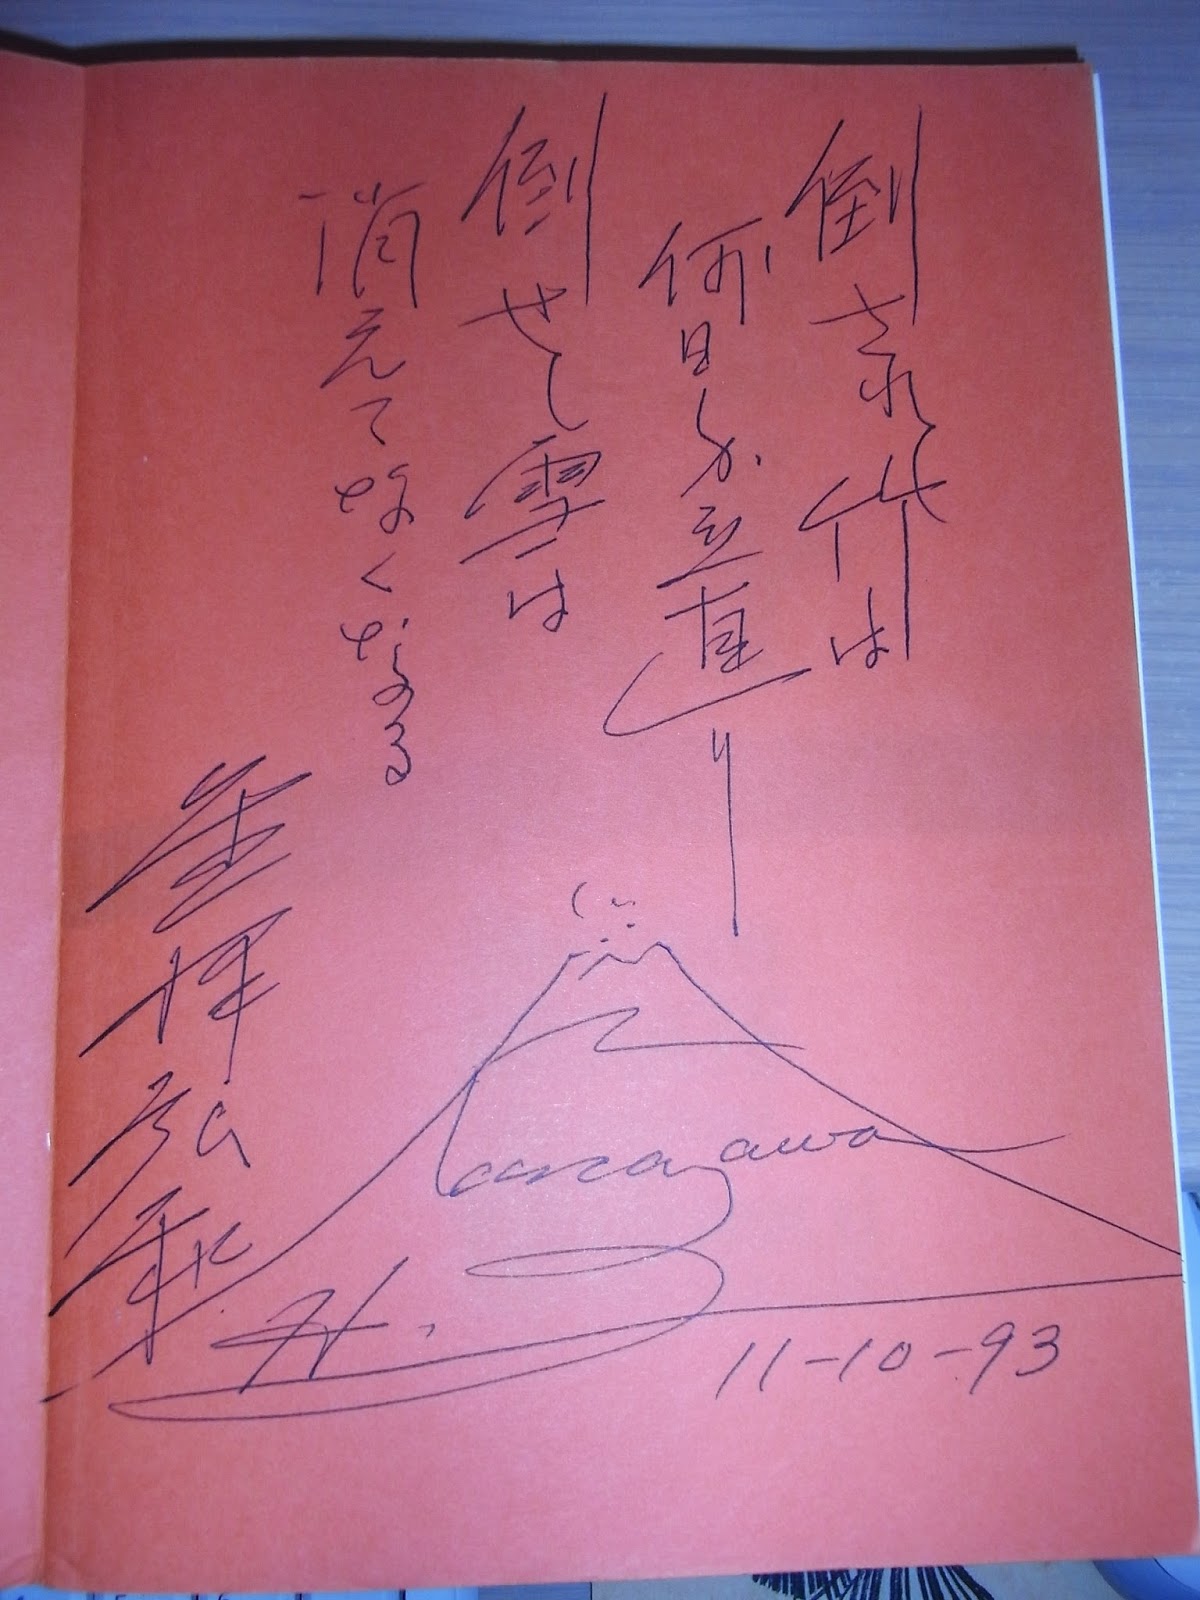 倒され竹は
何日か立直り
倒せし雪は
消えてなくなる
金澤弘和
H. Kanazawa
11-10-93